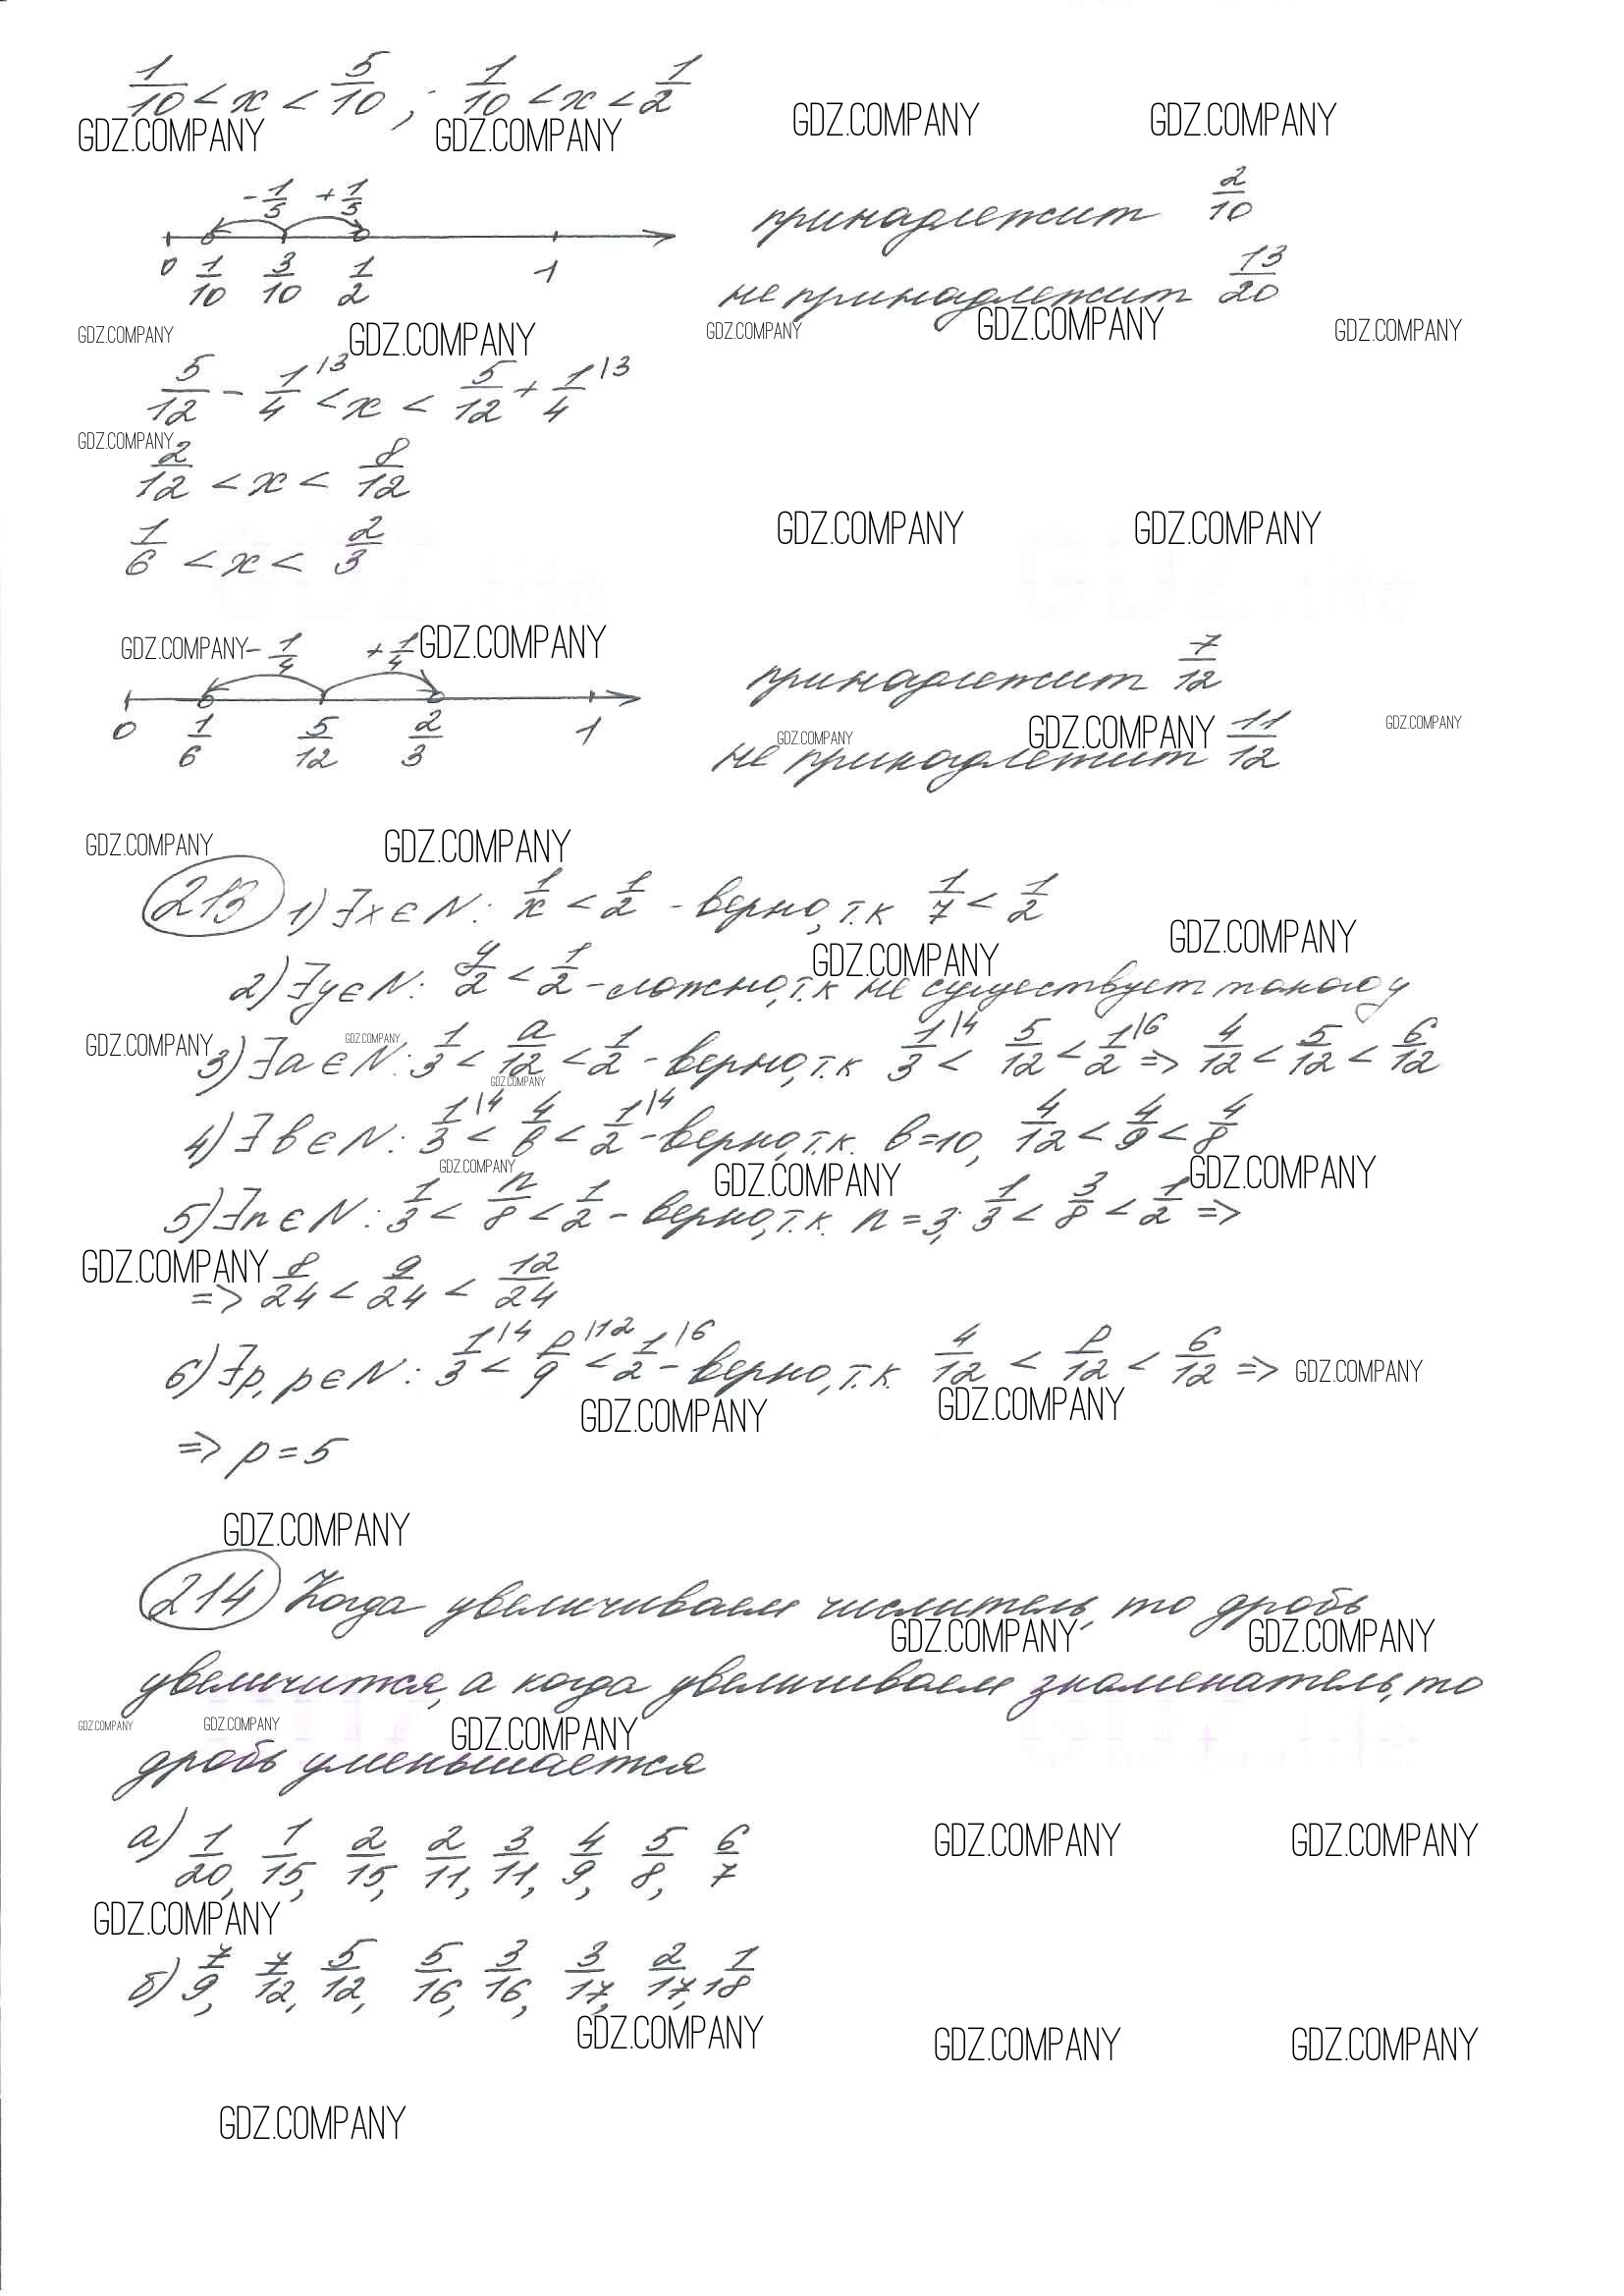 1/10 < x < 5/10 ; 1/10 < x < 1/2
GDZ.COMPANY GDZ.COMPANY GDZ.COMPANY GDZ.COMPANY
-1/5 +1/5 принадлежит 2/10
0 1/10 3/10 1/2 1 не принадлежит 13/20
GDZ.COMPANY GDZ.COMPANY GDZ.COMPANY GDZ.COMPANY GDZ.COMPANY
5/12 - 1/4 |3 < x < 5/12 + 1/4 |3
GDZ.COMPANY
2/12 < x < 8/12
GDZ.COMPANY GDZ.COMPANY
1/6 < x < 2/3
GDZ.COMPANY -1/4 +1/4 GDZ.COMPANY принадлежит 7/12
0 1/6 5/12 2/3 1 не принадлежит 11/12
GDZ.COMPANY GDZ.COMPANY GDZ.COMPANY
GDZ.COMPANY GDZ.COMPANY
213 1) ∃x∈N: 1/x < 1/2 - верно, т.к 1/7 < 1/2
GDZ.COMPANY GDZ.COMPANY
2) ∃y∈N: y/2 < 1/2 - ложно, т.к не существует такого y
GDZ.COMPANY GDZ.COMPANY
3) ∃a∈N: 1/3 < a/12 < 1/2 - верно, т.к 1/3 |4 < 5/12 < 1/2 |6 => 4/12 < 5/12 < 6/12
GDZ.COMPANY
4) ∃в∈N: 1/3 |4 < 4/в < 1/2 |4 - верно, т.к. в=10, 4/12 < 4/9 < 4/8
GDZ.COMPANY GDZ.COMPANY GDZ.COMPANY
5) ∃n∈N: 1/3 < n/8 < 1/2 - верно, т.к. n=3; 1/3 < 3/8 < 1/2 =>
GDZ.COMPANY
=> 8/24 < 9/24 < 12/24
6) ∃p, p∈N: 1/3 |4 < p/9 |12 < 1/2 |6 - верно, т.к. 4/12 < p/12 < 6/12 => GDZ.COMPANY
GDZ.COMPANY GDZ.COMPANY
=> p = 5
GDZ.COMPANY
214 Когда увеличиваем числитель, то дробь
GDZ.COMPANY GDZ.COMPANY
увеличится, а когда увеличиваем знаменатель, то
GDZ.COMPANY GDZ.COMPANY GDZ.COMPANY
дробь уменьшается
а) 1/20, 1/15, 2/15, 2/11, 3/11, 4/9, 5/8, 6/7
GDZ.COMPANY GDZ.COMPANY
GDZ.COMPANY
б) 7/9, 7/12, 5/12, 5/16, 3/16, 3/17, 2/17, 1/18
GDZ.COMPANY GDZ.COMPANY GDZ.COMPANY
GDZ.COMPANY